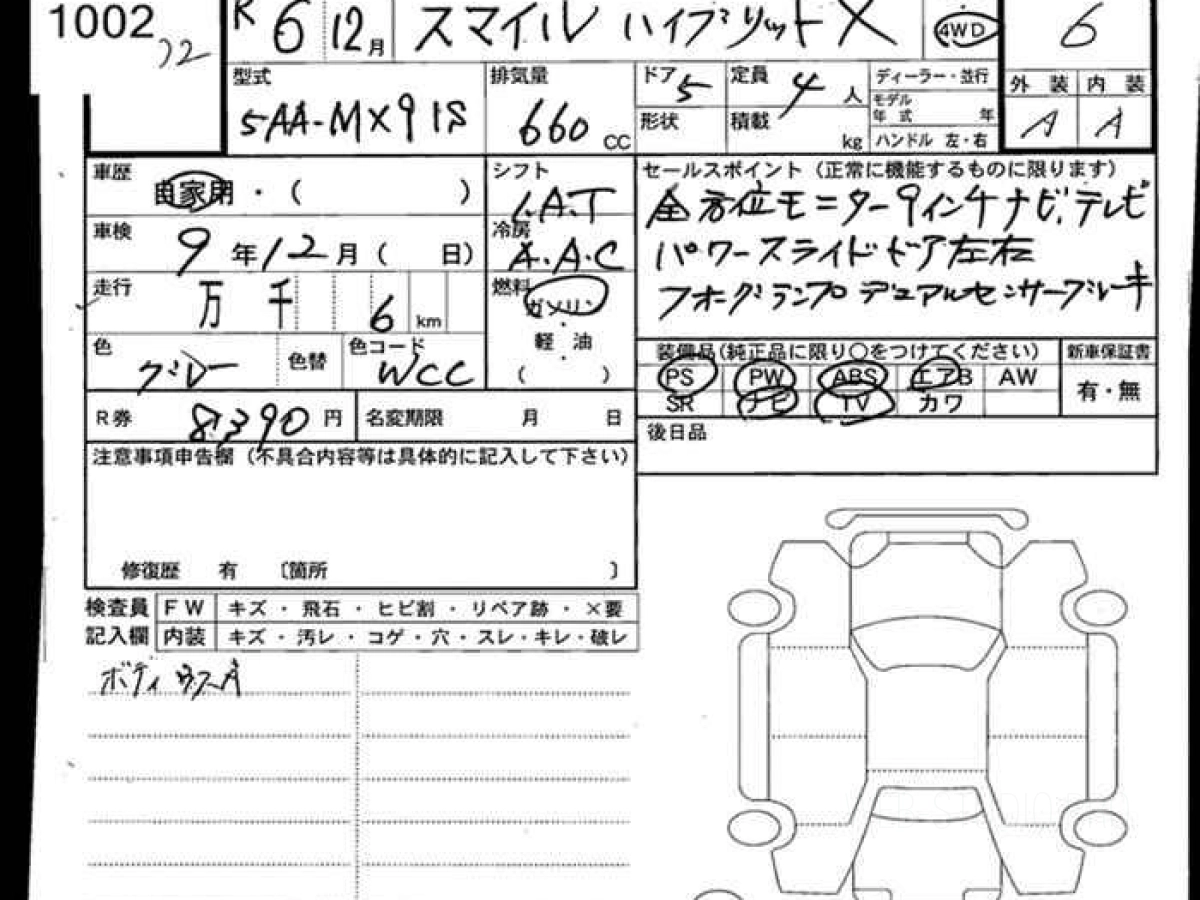 1002
R 6 12月 スマイル ハイブリット X 4WD 6
型式 5AA-MX91S
排気量 660 CC
ドア 5
定員 4 人
形状
積載 kg
ディーラー・並行
モデル年式 年
ハンドル 左・右
外装 内装
A A
車歴 自家用・( )
車検 9年12月( 日)
走行 万 千 6 km
色 グレー 色替 色コード WCC
シフト I.A.T
冷房 A.A.C
燃料 ガソリン
軽油
( )
セールスポイント(正常に機能するものに限ります)
全方位モニター9インチナビ,テレビ
パワースライドドア左右
フォグランプ デュアルセンサーブレーキ
装備品(純正品に限り○をつけてください) 新車保証書
PS PW ABS エアB AW 有・無
SR ナビ TV カワ
R券 8,390 円 名変期限 月 日
後日品
注意事項申告欄(不具合内容等は具体的に記入して下さい)
修復歴 有 〔箇所 〕
検査員 FW キズ・飛石・ヒビ割・リペア跡・×要
記入欄 内装 キズ・汚レ・コゲ・穴・スレ・キレ・破レ
ボディ ウスA